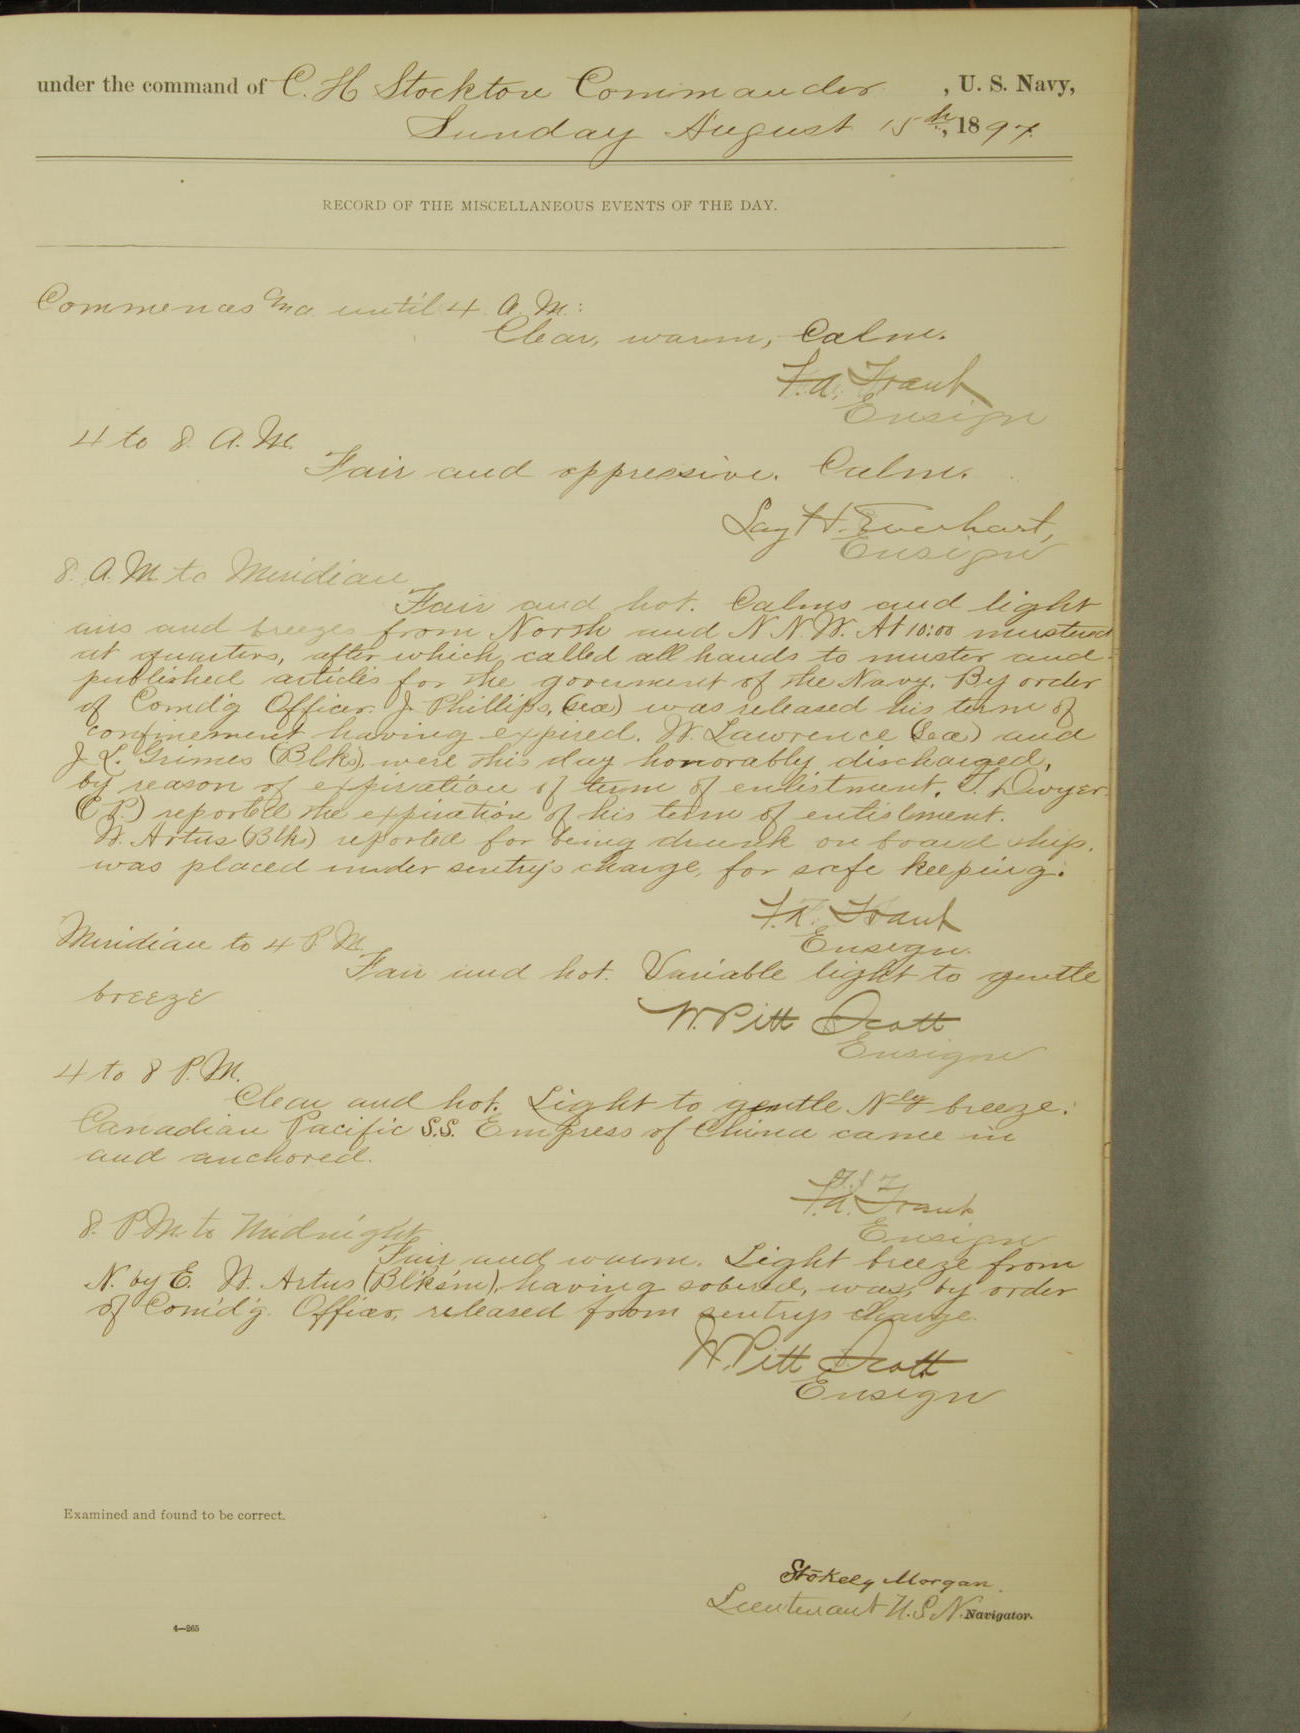 under the command of C. H Stockton Commander , U. S. Navy,
Sunday August 15th, 1897.
RECORD OF THE MISCELLANEOUS EVENTS OF THE DAY.
Commences and until 4 A. M.:
Clear, warm, Calm.
F. A. Traut
Ensign
4 to 8. A. M.
Fair and oppressive. Calm.
Lay H. Everhart,
Ensign
8. A. M to Meridian
Fair and hot. Calms and light
airs and breezes from North and N N. W. At 10:00 mustered
at quarters, after which called all hands to muster and
published articles for the goverment of the Navy. By order
of Comd'g Officer. J. Phillips, (sea) was released his term of
confinement having expired. W. Lawrence (Sea) and
J L. Grimes (Blks), were this day honorably discharged,
by reason of expiration of term of enlistment. T. Dwyer
(C P.) reported the expiration of his term of enlistment.
W. Artus (Blks) reported for being drunk on board ship.
was placed under sentry's charge, for safe keeping.
F. A. Traut
Ensign.
Meridian to 4 P M.
Fair and hot. Variable light to gentle
breeze
W. Pitt Scott
Ensign
4 to 8 P. M.
Clear and hot. Light to gentle Nly breeze.
Canadian Pacific S.S. Empress of China came in
and anchored.
F. A. Traut
Ensign
8. P M. to Midnight
Fair and warm. Light breeze from
N. by E. W. Artus (Blksm), having sobered, was, by order
of Com'd'g. Officer, released from sentrys charge.
W. Pitt Scott
Ensign
Examined and found to be correct.
Stokely Morgan.
Lieutenant U. S N. Navigator.
4—265